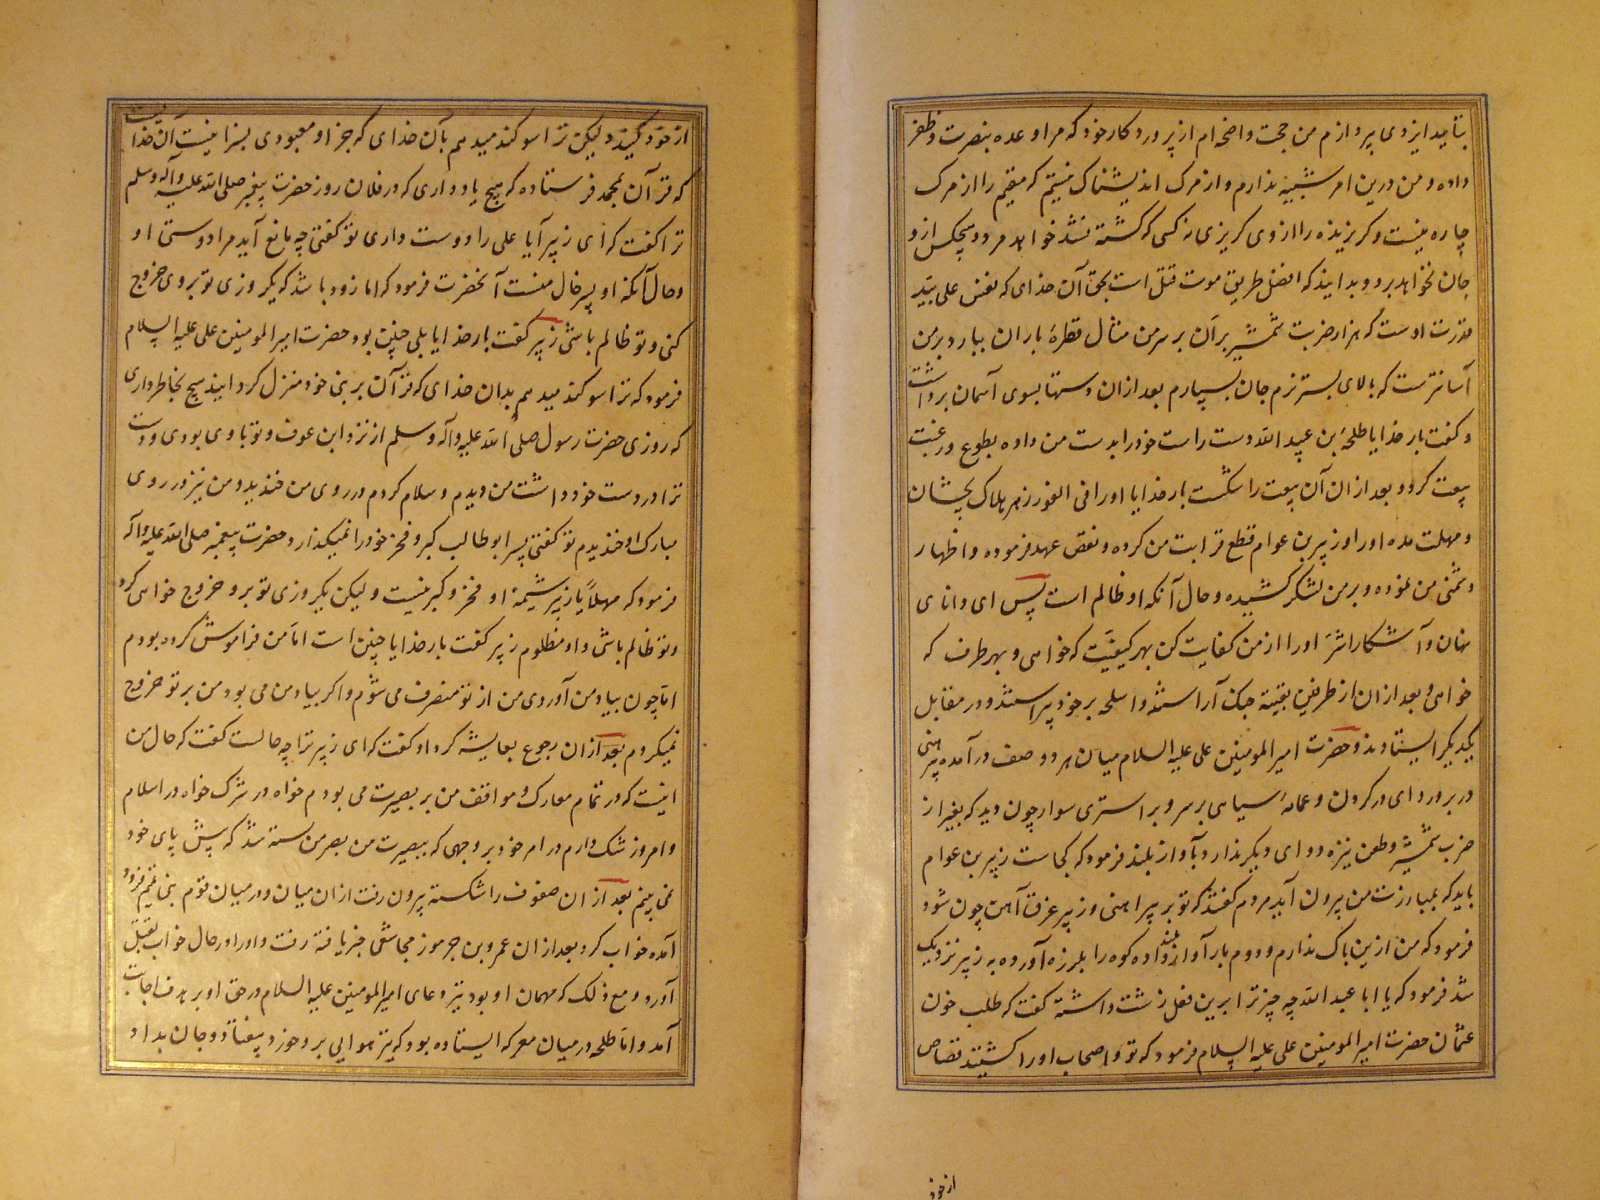 بتأیید ایزدی پردازم من حجت واضحه‌ام از پروردکار خود که مرا وعده بنصرت و ظفر
داده و من درین امر شبهه ندارم و از مرک اندیشناک نیستم که مقیم را از مرک
چاره نیست و کریزنده را از وی کریزی نه کسی که کشته نشد خواهد مرد و هیچکس ازو
جان نخواهد برد و بدانید که افضل طریق موت قتل است بحق آن خدای که نفس علی بید
قدرت اوست که هزار ضربت شمشیر بر آن بر سر من مثال قطرهٔ باران ببارد بر من
آسانترست که بالای بستر نرم جان بسپارم بعد از ان دستها بسوی آسمان برداشت
و کفت بار خدایا طلحة بن عبید الله دست راست خود را بدست من داده بطوع و رغبت
بیعت کرد و بعد از ان آن بیعت را شکست بار خدایا او را فی الفور زهر هلاک بچشان
و مهلت مده او را و زبیر بن عوام قطع قرابت من کرده و نقض عهد فرموده و اظهار
دشمنی من نموده و بر من لشکر کشیده و حال آنکه او ظالم است پس ای دانای
نهان و آشکارا شر او را از من کفایت کن بهر کیفیت که خواهی و بهر طرف که
خواهی و بعد از ان از طرفین بقیته جنک آراستند و اسلحه بر خود پیراستند و در مقابل
یکدیکر ایستادند و حضرت امیر المومنین علی علیه السلام میان هر دو صف در آمده پیرهنی
در بر و ردای در کردن و عمامهٔ سیاهی بر سر و بر استری سوار چون دید که بغیر از
ضرب شمشیر و طعن نیزه دوای دیکر ندارد بآواز بلند فرمود که کجاست زبیر بن عوام
باید که بمبارزت من بیرون آید مردم کفتند که تو بر پیراهنی و زبیر غرق آهن چون شود
فرمود که من ازین باک ندارم و دوم بار آواز بلند داده کوه را بلرزه آورده به زبیر نزدیک
شد فرمود که یا ابا عبد الله چه چیز ترا برین فعل زشت داشته کفت که طلب خون
عثمان حضرت امیر المومنین علی علیه السلام فرمود که تو و اصحاب او را کشتید قصاص
از خود
از خود کنید ولیکن ترا سوکند میدهم بآن خدای که جز او معبودی بسزا نیست آن خدا نیست
که قرآن بمحمد فرستاده که هیچ یاد داری که در فلان روز حضرت پیغمبر صلی الله علیه و آله وسلم
ترا کفت که ای زبیر آیا علی را دوست داری تو کفتی چه مانع آید مرا دوستی او
و حال آنکه او پسر خال منست آنحضرت فرمود که اما زود باشد که یکروزی تو بروی خروج
کنی و تو ظالم باشی زبیر کفت بار خدایا بلی چنین بود حضرت امیر المومنین علی علیه السلام
فرمود که ترا سوکند میدهم بدان خدای که قرآن بر نبی خود منزل کردانید هیچ بخاطر داری
که روزی حضرت رسول صلی الله علیه و آله وسلم از نزد ابن عوف و تو با وی بودی و دست
ترا در دست خود داشت من دیدم و سلام کردم در روی من خندید و من نیز در روی
مبارک او خندیدم تو کفتی پسر ابو طالب کبر و فخر خود را نمیکذارد حضرت پیغمبر صلی الله علیه و آله
فرمود که مهلاً یا زبیر شیمهٔ او فخر و کبر نیست ولیکن یکروزی تو برو خروج خواهی کرد
و تو ظالم باشی و او مظلوم زبیر کفت بار خدایا چنین است اما من فراموش کرده بودم
اما چون بیاد من آوردی من از تو منصرف می شوم و اکر بیاد من می بود من بر تو خروج
نمیکردم بعد از ان رجوع بعایشه کرد او کفت که ای زبیر ترا چه حالست کفت که حال من
اینست که در تمام معارک و مواقف من بر بصیرت می بودم خواه در شرک خواه در اسلام
و امروز شک دارم در امر خود بر وجهی که بصیرت من بصر من بسته شد که پیش پای خود
نمی بینم بعد از ان صفوف را شکسته بیرون رفت از ان میان و در میان قوم بنی تمیم فرود
آمده خواب کرد بعد از ان عمرو بن جرموز مجاشعی خبر یافته رفت و او را در حال خواب بقتل
آورد و مع ذلک که مهمان او بود تیر دعای امیر المومنین علیه السلام در حق او بر هدف اجابت
آمد و اما طلحه در میان معرکه ایستاده بود که تیر هوایی برو خورد و بیفتاد و جان بداد